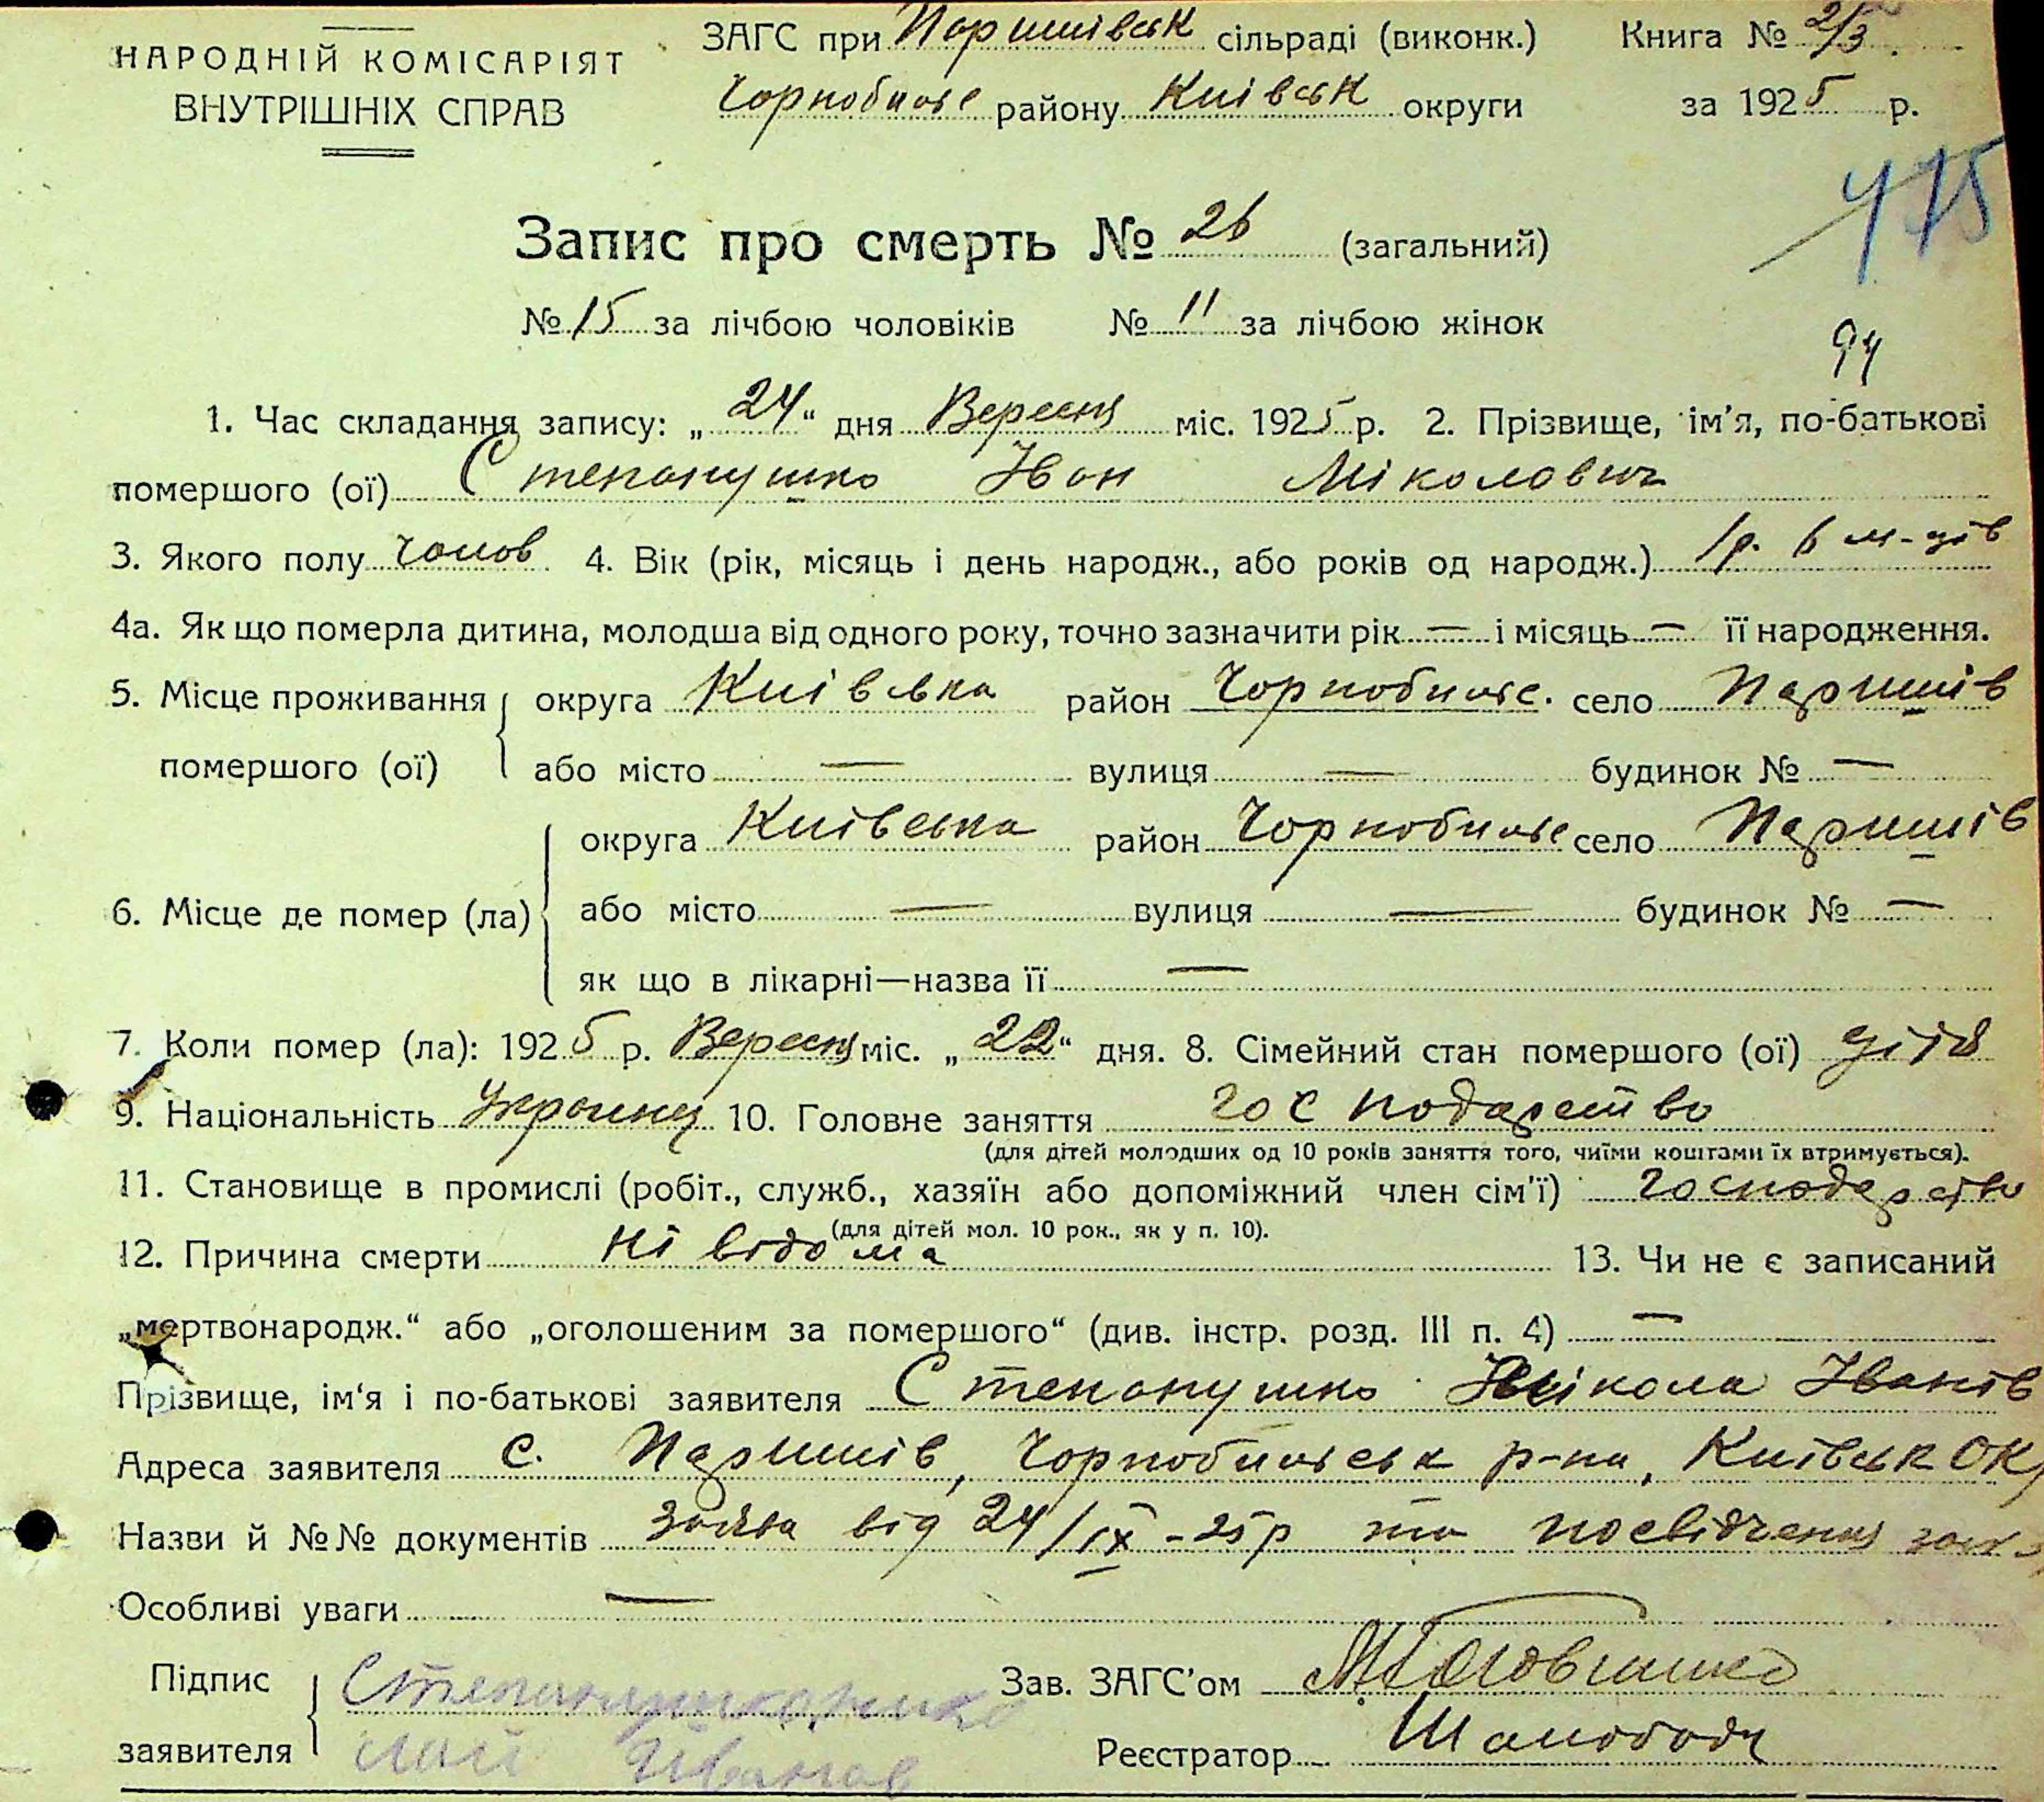 НАРОДНІЙ КОМІСАРІЯТ
ВНУТРІШНІХ СПРАВ
ЗАГС при Паришівськ сільраді (виконк.) Книга № 2/3.
Чорнобильс району Київськ округи за 1925 р.
475
Запис про смерть № 26 (загальний)
№ 15 за лічбою чоловіків № 11 за лічбою жінок
94
1. Час складання запису: „24“ дня Вересня міс. 1925 р. 2. Прізвище, ім'я, по-батькові
помершого (ої) Степанушко Іван Міколович
3. Якого полу чолов. 4. Вік (рік, місяць і день народж., або років од народж.) 1 р. 6 м-ців
4а. Як що померла дитина, молодша від одного року, точно зазначити рік — і місяць — її народження.
5. Місце проживання помершого (ої) округа Київська район Чорнобильс. село Паришів
або місто — вулиця — будинок № —
6. Місце де помер (ла) округа Київська район Чорнобильс село Паришів
або місто — вулиця — будинок № —
як що в лікарні—назва її —
7. Коли помер (ла): 1925 р. Вересня міс. „22“ дня. 8. Сімейний стан помершого (ої)
9. Національність Украинец 10. Головне заняття господарство
(для дітей молодших од 10 років заняття того, чиїми коштами їх втримується).
11. Становище в промислі (робіт., служб., хазяїн або допоміжний член сім'ї) господарство
(для дітей мол. 10 рок., як у п. 10).
12. Причина смерти Ні відома 13. Чи не є записаний
„мертвонародж.“ або „оголошеним за помершого“ (див. інстр. розд. III п. 4) —
Прізвище, ім'я і по-батькові заявителя Степанушко Мікола Іванів
Адреса заявителя С. Паришів, Чорнобильськ р-на, Київськ Окр
Назви й №№ документів заява від 24/IX-25р та посвідчення
Особливі уваги —
Підпис заявителя Степанушко Нико
лай Иванов
Зав. ЗАГС'ом
Реєстратор